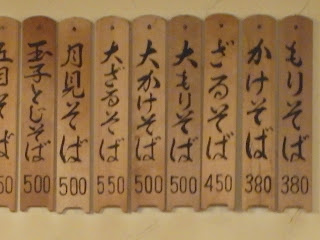 もりそば 380
かけそば 380
ざるそば 450
大もりそば 500
大かけそば 500
大ざるそば 550
月見そば 500
玉子とじそば 500
五目そば 50